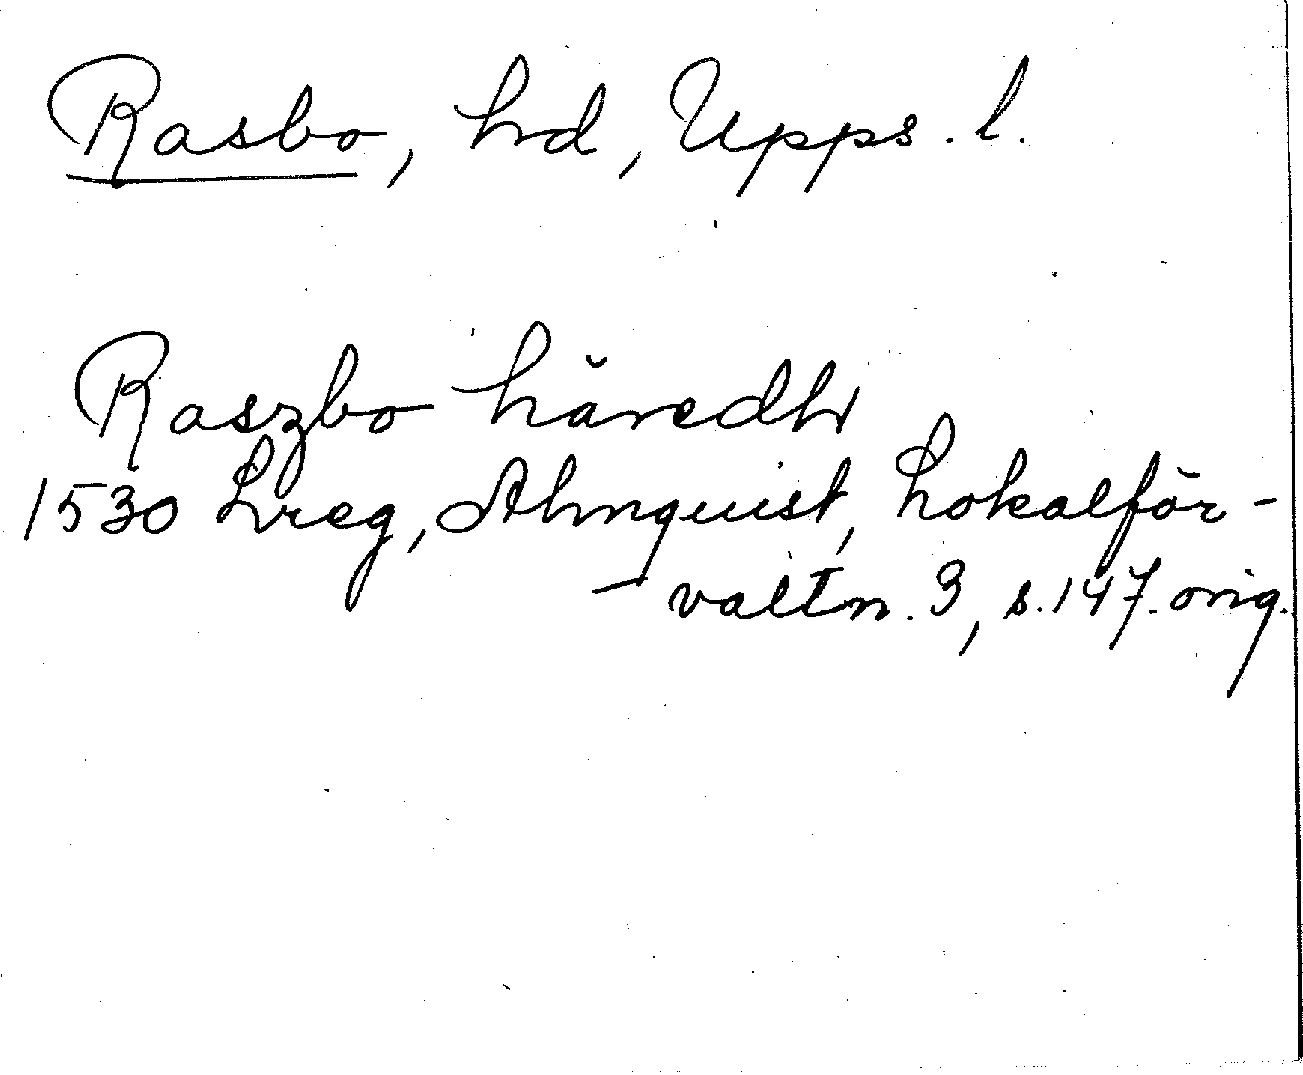 Rasbo, hd, Upps. l.
Raszbo häredh
1530 Lreg, Almquist, Lokalför-
valtn. 3, s. 147. orig.